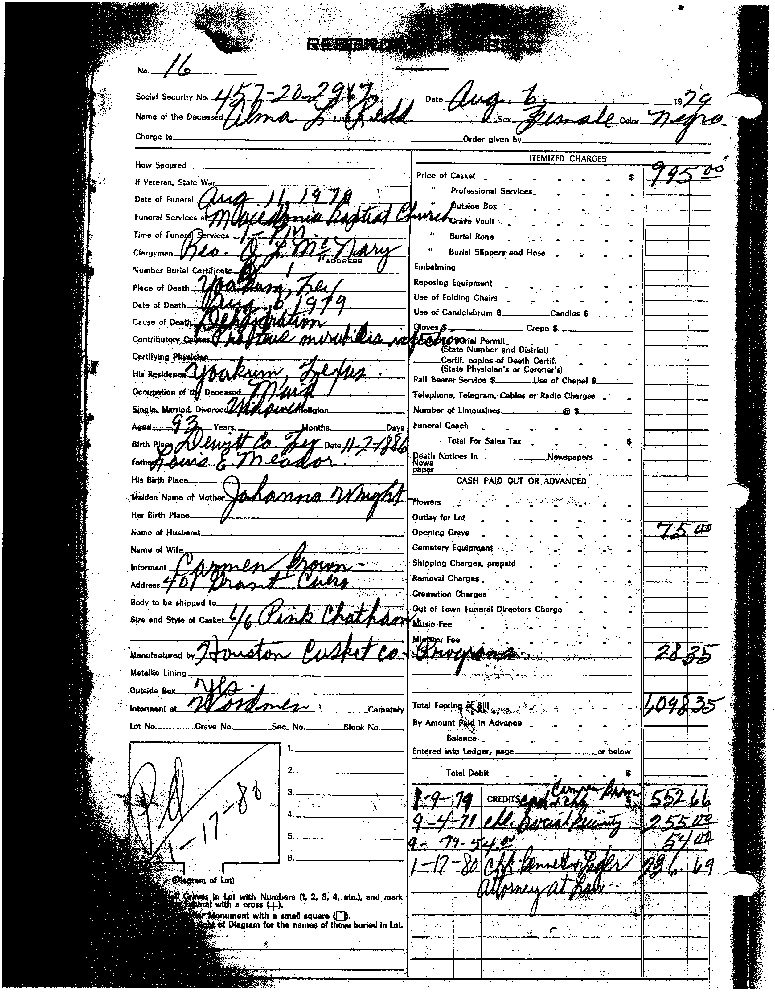 No. 16
Social Security No. 457-20-2967 Date Aug. 6 1979
Name of the Deceased Alma L. Redd Sex Female Color Negro.
Charge to Order given by
ITEMIZED CHARGES
How Spared
If Veteran, State War
Date of Funeral Aug 11, 1979
Funeral Services at Macedonia Baptist Church
Time of Funeral Services 1- P.M.
Clergyman Rev. L. McNary
ADDRESS
Number Burial Certificate
Place of Death Yoakum, Tex
Date of Death Aug 6, 1979
Cause of Death Dehydration
Contributory Causes Proteus mirabilis infection
Certifying Physician
His Residence Yoakum, Texas.
Occupation of the Deceased Maid
Single, Married, Divorced Widowed Religion
Aged 93 Years Months Days
Birth Place Dewitt Co. Tex Date 11-7-1886
Father Louis E Meador.
His Birth Place
Maiden Name of Mother Johanna Wright
Her Birth Place
Name of Husband
Name of Wife
Informant Carmen Brown
Address 401 Grant Cuero
Body to be shipped to
Size and Style of Casket 6/6 Pink Chatham
Manufactured by Houston Casket Co.
Metallic Lining
Outside Box Yes
Interment at Woodmen Cemetery
Lot No. Grave No. Sec. No. Block No.
Price of Casket $ 995 00
" Professional Services
" Outside Box
" Grave Vault
" Burial Robe
" Burial Slippers and Hose
Embalming
Reposing Equipment
Use of Folding Chairs
Use of Candelabrum $ Candles $
Gloves $ Crepe $
Burial Permit
(State Number and District)
Certif. copies of Death Certif.
(State Physician's or Coroner's)
Pall Bearer Service $ Use of Chapel $
Telephone, Telegram, Cables or Radio Charges
Number of Limousines @ $
Funeral Coach
Total For Sales Tax $
Death Notices in Newspapers
News
paper
CASH PAID OUT OR ADVANCED
Flowers
Outlay for Lot
Opening Grave 75 00
Cemetery Equipment
Shipping Charges, prepaid
Removal Charges
Cremation Charges
Out of Town Funeral Directors Charge
Music Fee
Minister Fee
Programs 28 35
Total Footing of Bill 1,098 35
By Amount Paid in Advance
Balance
Entered into Ledger, page or below
Total Debit $
Carmen Brown
8-9-79 CREDITS $ 552 66
9-4-79 chk. Social Security 255 00
9- 79-54 54 00
1-17-80 chk 236 69
Attorney at Law
Pd
1-17-80
1.
2.
3.
4.
5.
6.
(Diagram of Lot)
Graves in Lot with Numbers (1, 2, 3, 4, etc.), and mark
with a cross (+).
Monument with a small square (□).
of Diagram for the names of those buried in Lot.